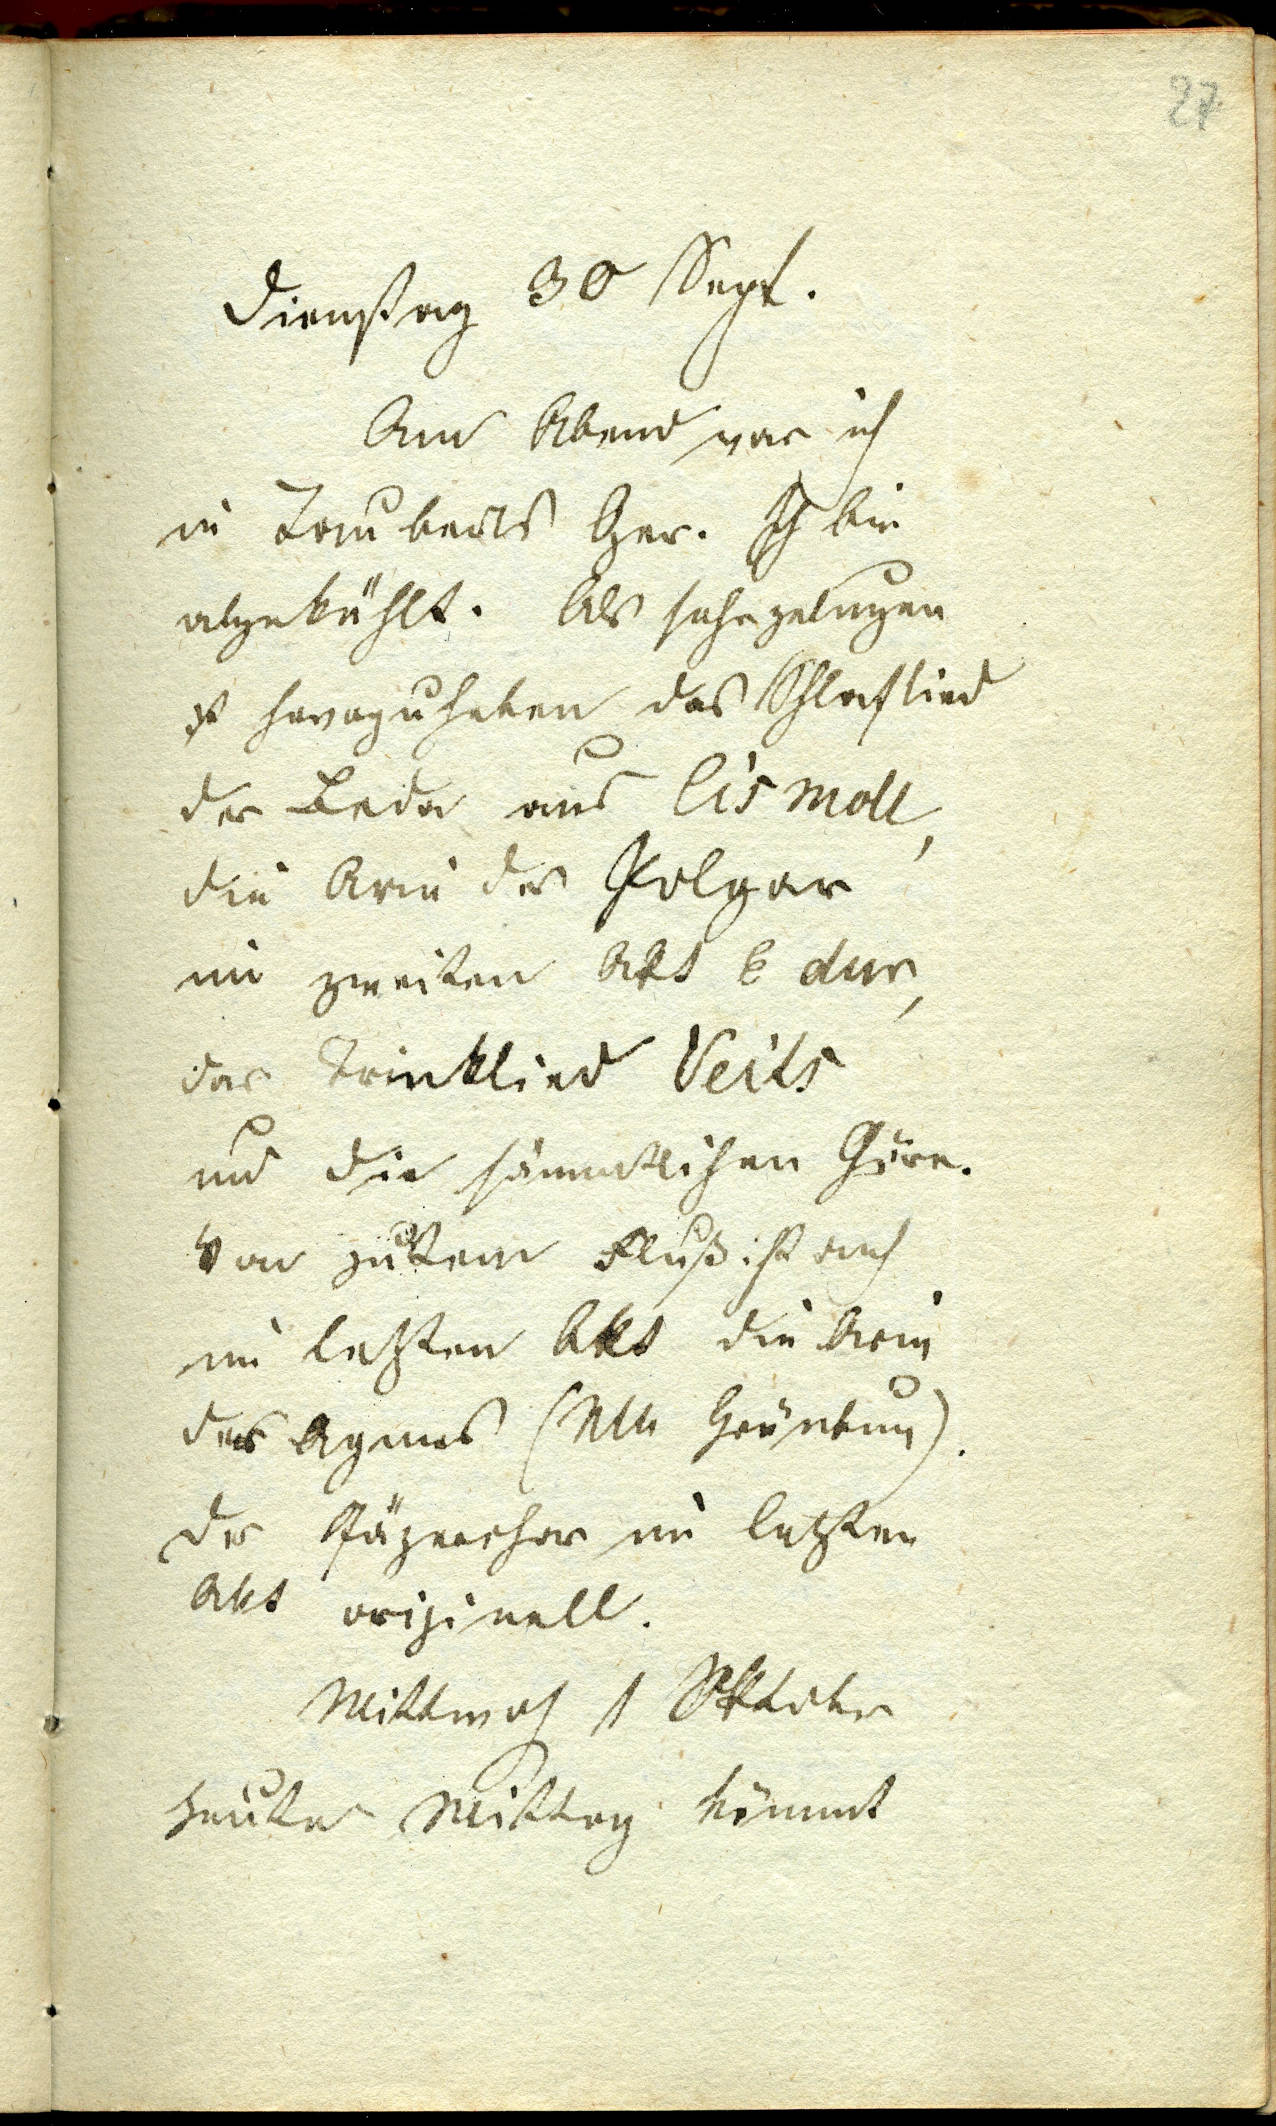 27
Dienstag 30 Sept.
Am Abend war ich
in Tauberts Oper. Ich bin
abgekühlt. Als sehr gelungen
ist hervorzuheben das Schlaflied
der Beda aus Cis moll,
die Arie des Polgar
im zweiten Akt E dur,
das Trinklied Veits
und die sämmtlichen Chöre.
Von gutem Fluß ist auch
im letzten Akt die Arie
der Agnes (Mlle Grünbaum).
Der Jägerchor im letzten
Akt originell.
Mittwoch 1 Oktober
Heute Mittag kömmt